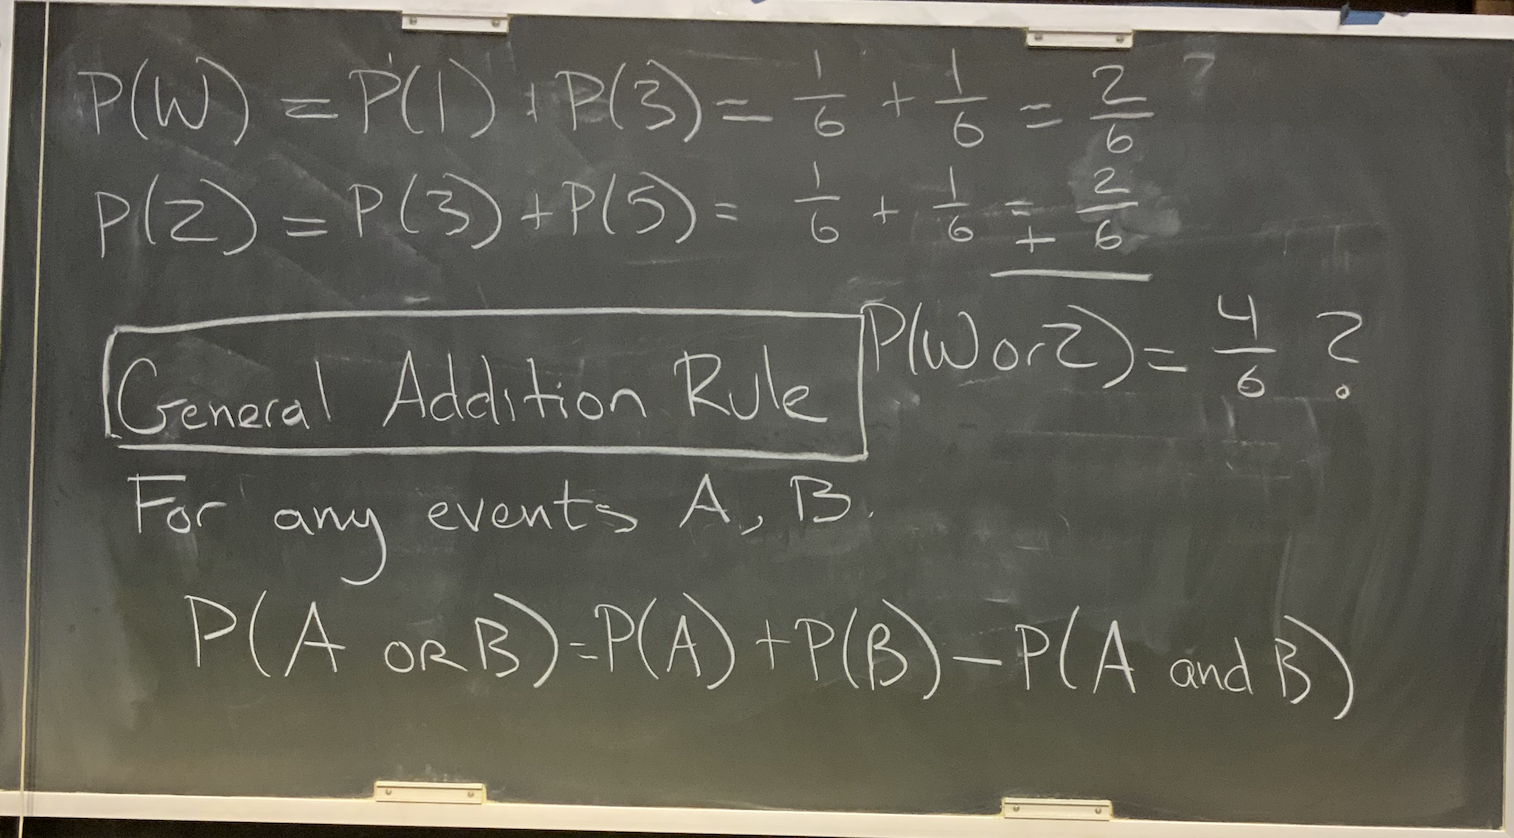 P(W) = P(1) + P(3) = 1/6 + 1/6 = 2/6 ?
P(Z) = P(3) + P(5) = 1/6 + 1/6 = 2/6
+
P(W or Z) = 4/6 ?
General Addition Rule
For any events A, B.
P(A OR B) = P(A) + P(B) - P(A and B)